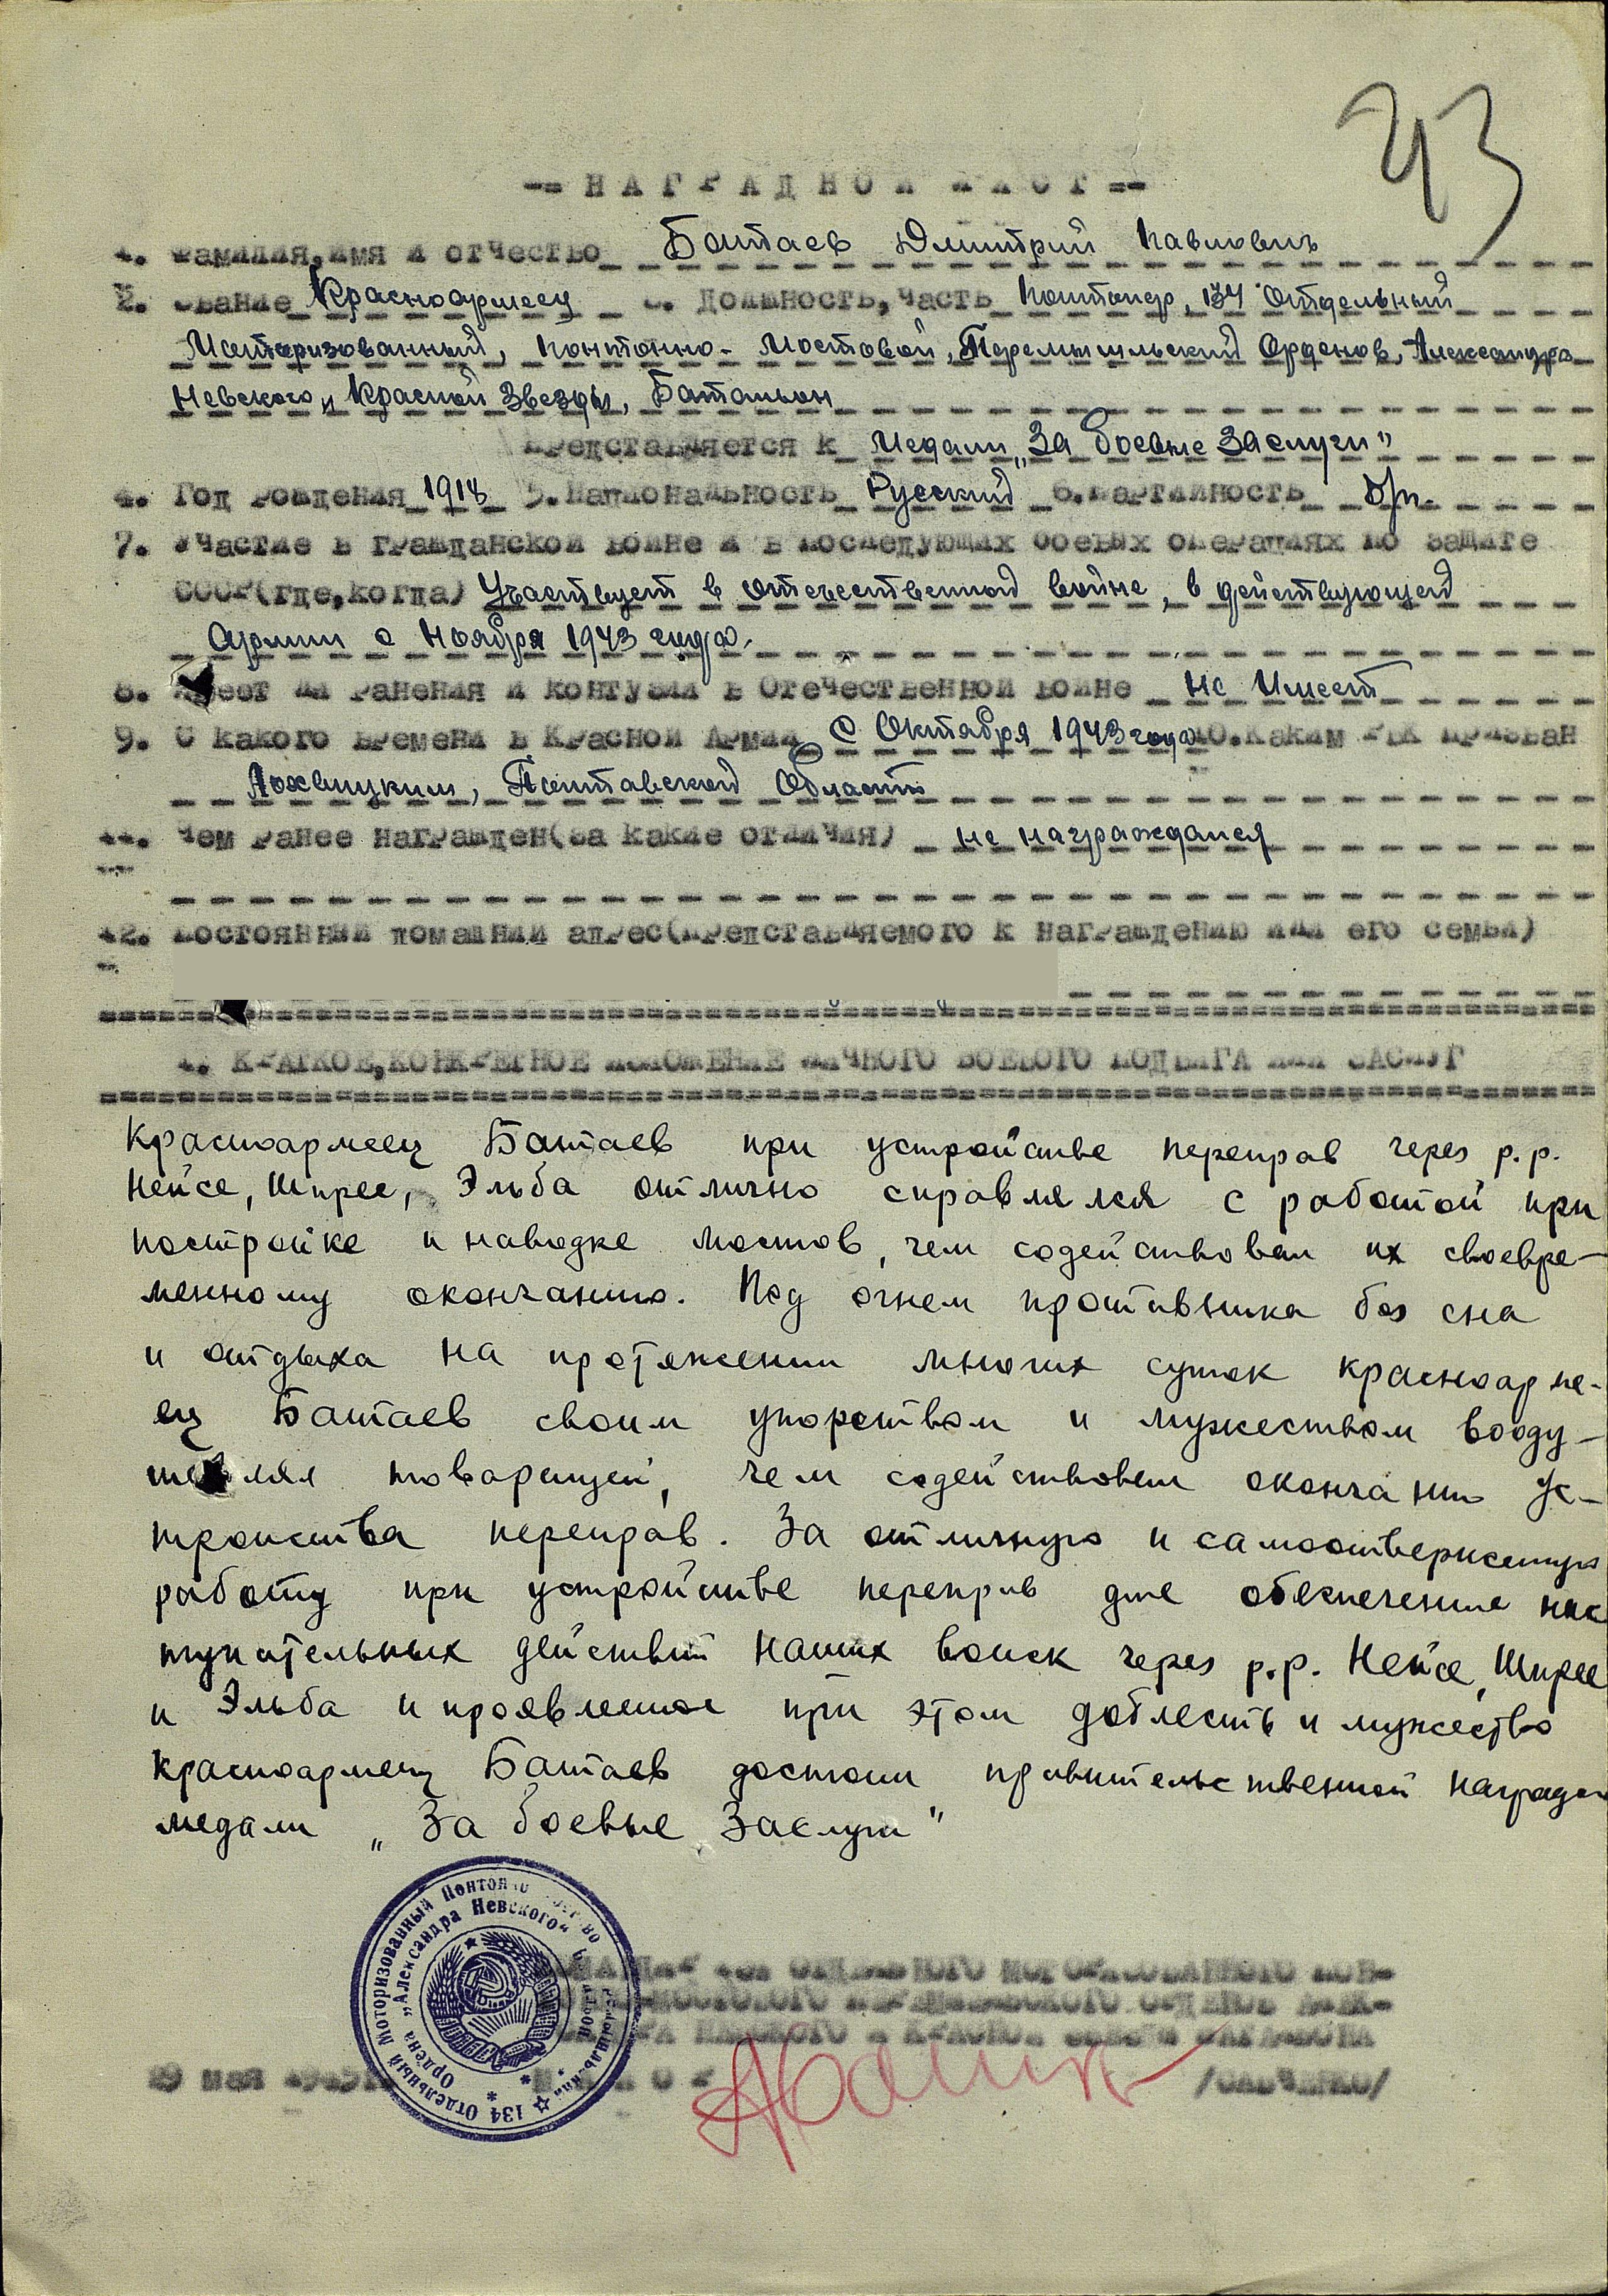 43
-= НАГРАДНОЙ ЛИСТ =-
1. Фамилия, имя и отчество Батаев Дмитрий Павловичъ
2. Звание Красноармеец 3. Должность, часть Понтонер, 134 Отдельный
Моторизованный, Понтонно-Мостовой, Перемышльский Орденов, Александра
Невского и Красной Звезды, Батальон
Представляется к Медали „За боевые Заслуги"
4. Год рождения 1918 5. Национальность Русский 6. Партийность б/п.
7. Участие в гражданской войне и в последующих боевых операциях по защите
СССР (где, когда) Участвует в отечественной войне, в действующей
Армии с Ноября 1943 года.
8. Имеет ли ранения и контузии в Отечественной войне Не Имеет
9. С какого времени в Красной Армии С Октября 1943 года 10. Каким РВК призван
Лохвицким, Полтавской Области
11. Чем ранее награжден (за какие отличия) не награждался
12. Постоянный домашний адрес (представляемого к награждению или его семьи)
1. КРАТКОЕ, КОНКРЕТНОЕ ИЗЛОЖЕНИЕ ЛИЧНОГО БОЕВОГО ПОДВИГА ИЛИ ЗАСЛУГ
Красноармеец Батаев при устройстве переправ через р.р.
Нейсе, Шпрее, Эльба отлично справлялся с работой при
постройке и наводке мостов, чем содействовал их своевре-
менному окончанию. Под огнем противника без сна
и отдыха на протяжении многих суток красноарме-
ец Батаев своим упорством и мужеством вооду-
шевлял товарищей, чем содействовал окончанию ус-
тройства переправ. За отличную и самоотверженную
работу при устройстве переправ для обеспечения нас
тупательных действий наших войск через р.р. Нейсе, Шпрее
и Эльба и проявленное при этом доблесть и мужество
красноармеец Батаев достоин правительственной награды
медали „За боевые Заслуги"
134 Отдельный Моторизованный Понтонно
Ордена „Александра Невского"
КОМАНДИР 134 ОТДЕЛЬНОГО МОТОРИЗОВАННОГО ПОН-
ТОННО-МОСТОВОГО ПЕРЕМЫШЛЬСКОГО ОРДЕНОВ АЛЕК-
САНДРА НЕВСКОГО и КРАСНОЙ ЗВЕЗДЫ БАТАЛЬОНА
29 мая 1945г. МАЙОР /САВЧЕНКО/